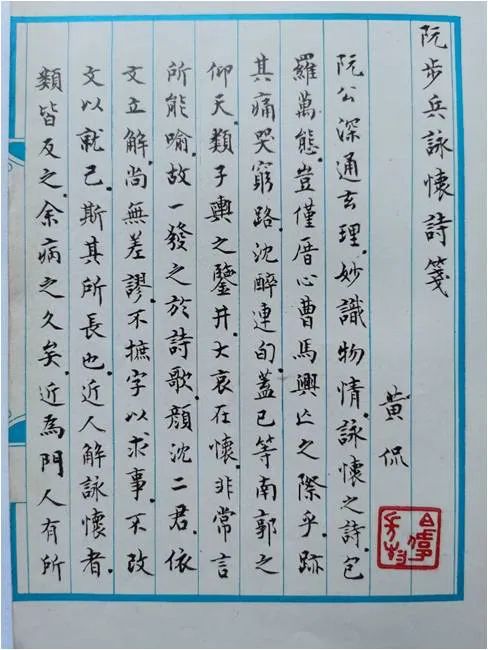 阮步兵詠懷詩箋
黃侃
阮公深通玄理.妙識物情.詠懷之詩.包
羅萬態.豈僅厝心曹馬興亡之際乎.跡
其痛哭窮路.沈醉連旬.蓋已等南郭之
仰天.類子輿之鑒井.大哀在懷.非常言
所能喻.故一發之於詩歌.顏沈二君.依
文立解.尚無差謬.不摭字以求事.不改
文以就己.斯其所長也.近人解詠懷者.
類皆及之.余病之久矣.近為門人有所